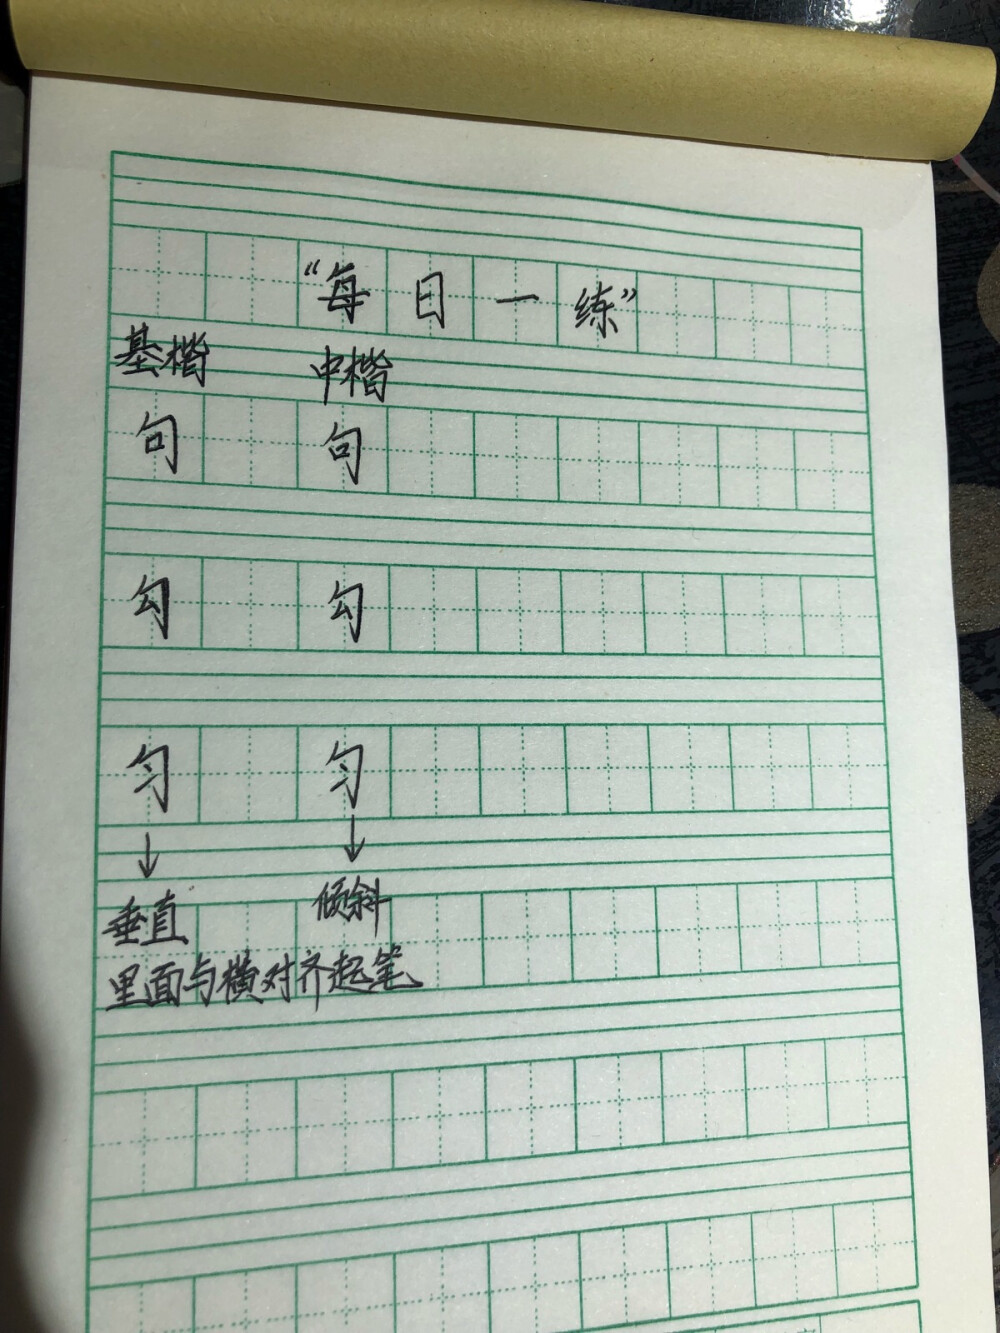 “每日一练”
基楷 中楷
句 句
勾 勾
匀 匀
↓ ↓
垂直 倾斜
里面与横对齐起笔